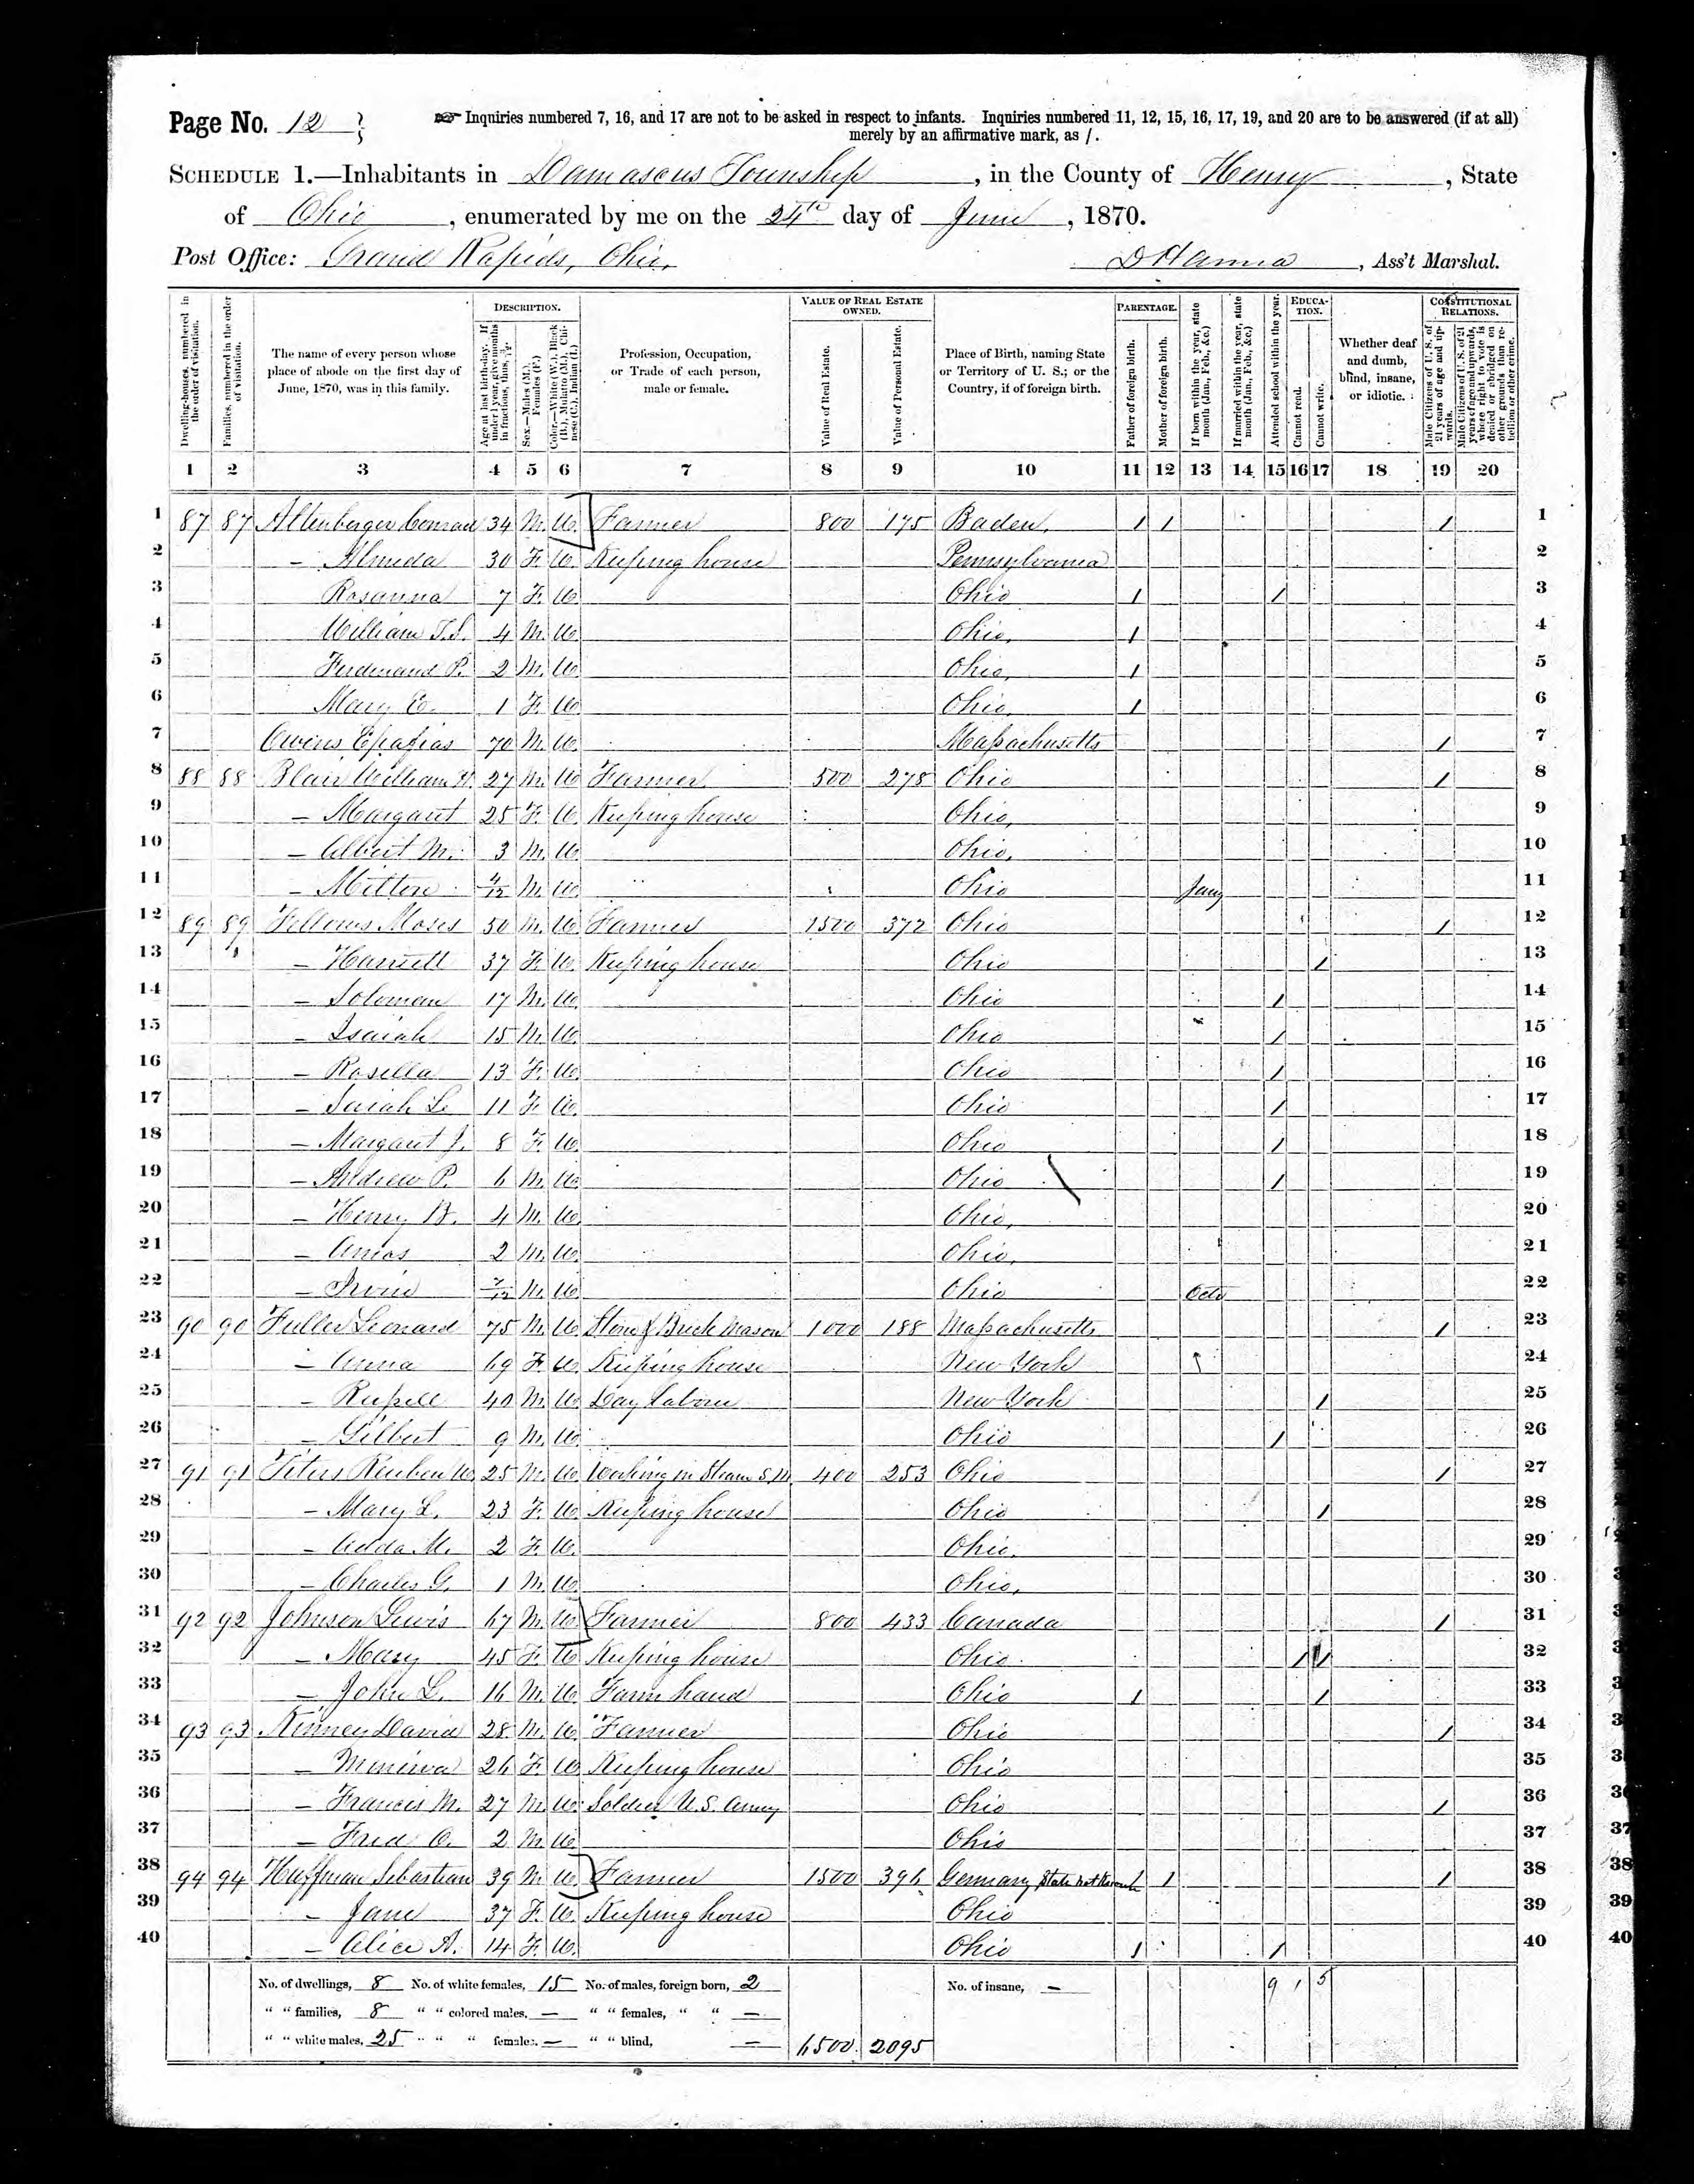 Page No. 12
Inquiries numbered 7, 16, and 17 are not to be asked in respect to infants. Inquiries numbered 11, 12, 15, 16, 17, 19, and 20 are to be answered (if at all)
merely by an affirmative mark, as /.
SCHEDULE 1.—Inhabitants in Damascus Township, in the County of Henry, State
of Ohio, enumerated by me on the 24th day of June, 1870.
Post Office: Grand Rapids, Ohio, D Hanna, Ass't Marshal.
Dwelling-houses, numbered in the order of visitation.
Families, numbered in the order of visitation.
The name of every person whose place of abode on the first day of June, 1870, was in this family.
DESCRIPTION.
Age at last birth-day. If under 1 year, give months in fractions, thus, 3/12.
Sex.—Males (M.), Females (F.)
Color.—White (W.), Black (B.), Mulatto (M.), Chinese (C.), Indian (I.)
Profession, Occupation, or Trade of each person, male or female.
VALUE OF REAL ESTATE OWNED.
Value of Real Estate.
Value of Personal Estate.
Place of Birth, naming State or Territory of U. S.; or the Country, if of foreign birth.
PARENTAGE.
Father of foreign birth.
Mother of foreign birth.
If born within the year, state month (Jan., Feb., &c.)
If married within the year, state month (Jan., Feb., &c.)
Attended school within the year.
EDUCATION.
Cannot read.
Cannot write.
Whether deaf and dumb, blind, insane, or idiotic.
CONSTITUTIONAL RELATIONS.
Male Citizens of U. S. of 21 years of age and upwards.
Male Citizens of U. S. of 21 years of age and upwards, where right to vote is denied or abridged on other grounds than rebellion or other crime.
1 2 3 4 5 6 7 8 9 10 11 12 13 14 15 16 17 18 19 20
1 87 87 Altenberger Conrad 34 M. W. Farmer 800 175 Baden, / / / 1
2 — Almeda 30 F. W. Keeping house Pennsylvania 2
3 Rosanna 7 F. W. Ohio / / 3
4 William T.S. 4 M. W. Ohio, / 4
5 Ferdinand P. 2 M. W. Ohio, / 5
6 Mary E. 1 F. W. Ohio, / 6
7 Owens 70 M. W. Massachusetts / 7
8 88 88 Blair William H. 27 M. W. Farmer 500 278 Ohio / 8
9 — Margaret 25 F. W. Keeping house Ohio, 9
10 — Albert M. 3 M. W. Ohio, 10
11 — Milton 4/12 M. W. Ohio Jany 11
12 89 89 Fellows Moses 50 M. W. Farmer 1500 372 Ohio / 12
13 — Harriett 37 F. W. Keeping house Ohio / 13
14 — Soloman 17 M. W. Ohio / 14
15 — Isaiah 15 M. W. Ohio / 15
16 — Rosilla 13 F. W. Ohio / 16
17 — Sarah L. 11 F. W. Ohio / 17
18 — Margaret J. 8 F. W. Ohio / 18
19 — Andrew P. 6 M. W. Ohio / 19
20 — Henry B. 4 M. W. Ohio, 20
21 — Amos 2 M. W. Ohio, 21
22 — Irvin 7/12 M. W. Ohio Octo 22
23 90 90 Fuller Leonard 75 M. W. Stone & Brick Mason 1000 188 Massachusetts / 23
24 — Anna 69 F. W. Keeping house New York 24
25 — Russell 40 M. W. Day Laborer New York / 25
26 — Gilbert 9 M. W. Ohio / 26
27 91 91 Titus Reuben W. 25 M. W. Working in Steam S.M. 400 253 Ohio / 27
28 — Mary L. 23 F. W. Keeping house Ohio / 28
29 — Adda M. 2 F. W. Ohio, 29
30 — Charles G. 1 M. W. Ohio, 30
31 92 92 Johnson Lewis 67 M. W. Farmer 800 433 Canada / 31
32 — Mary 45 F. W. Keeping house Ohio / / 32
33 — John L. 16 M. W. Farm hand Ohio / / 33
34 93 93 Kinney David 28 M. W. Farmer Ohio / 34
35 — Minerva 26 F. W. Keeping house Ohio 35
36 — Francis M. 27 M. W. Soldier U.S. Army Ohio / 36
37 — Fred O. 2 M. W. Ohio 37
38 94 94 Huffman Sebastian 39 M. W. Farmer 1500 396 Germany, State not Known / / 38
39 — Jane 37 F. W. Keeping house Ohio 39
40 — Alice A. 14 F. W. Ohio / / 40
No. of dwellings, 8 No. of white females, 15 No. of males, foreign born, 2 No. of insane, — 9 1 5
" " families, 8 " " colored males, — " " females, " " —
" " white males, 25 " " " females, — " " blind, — 6500 2095